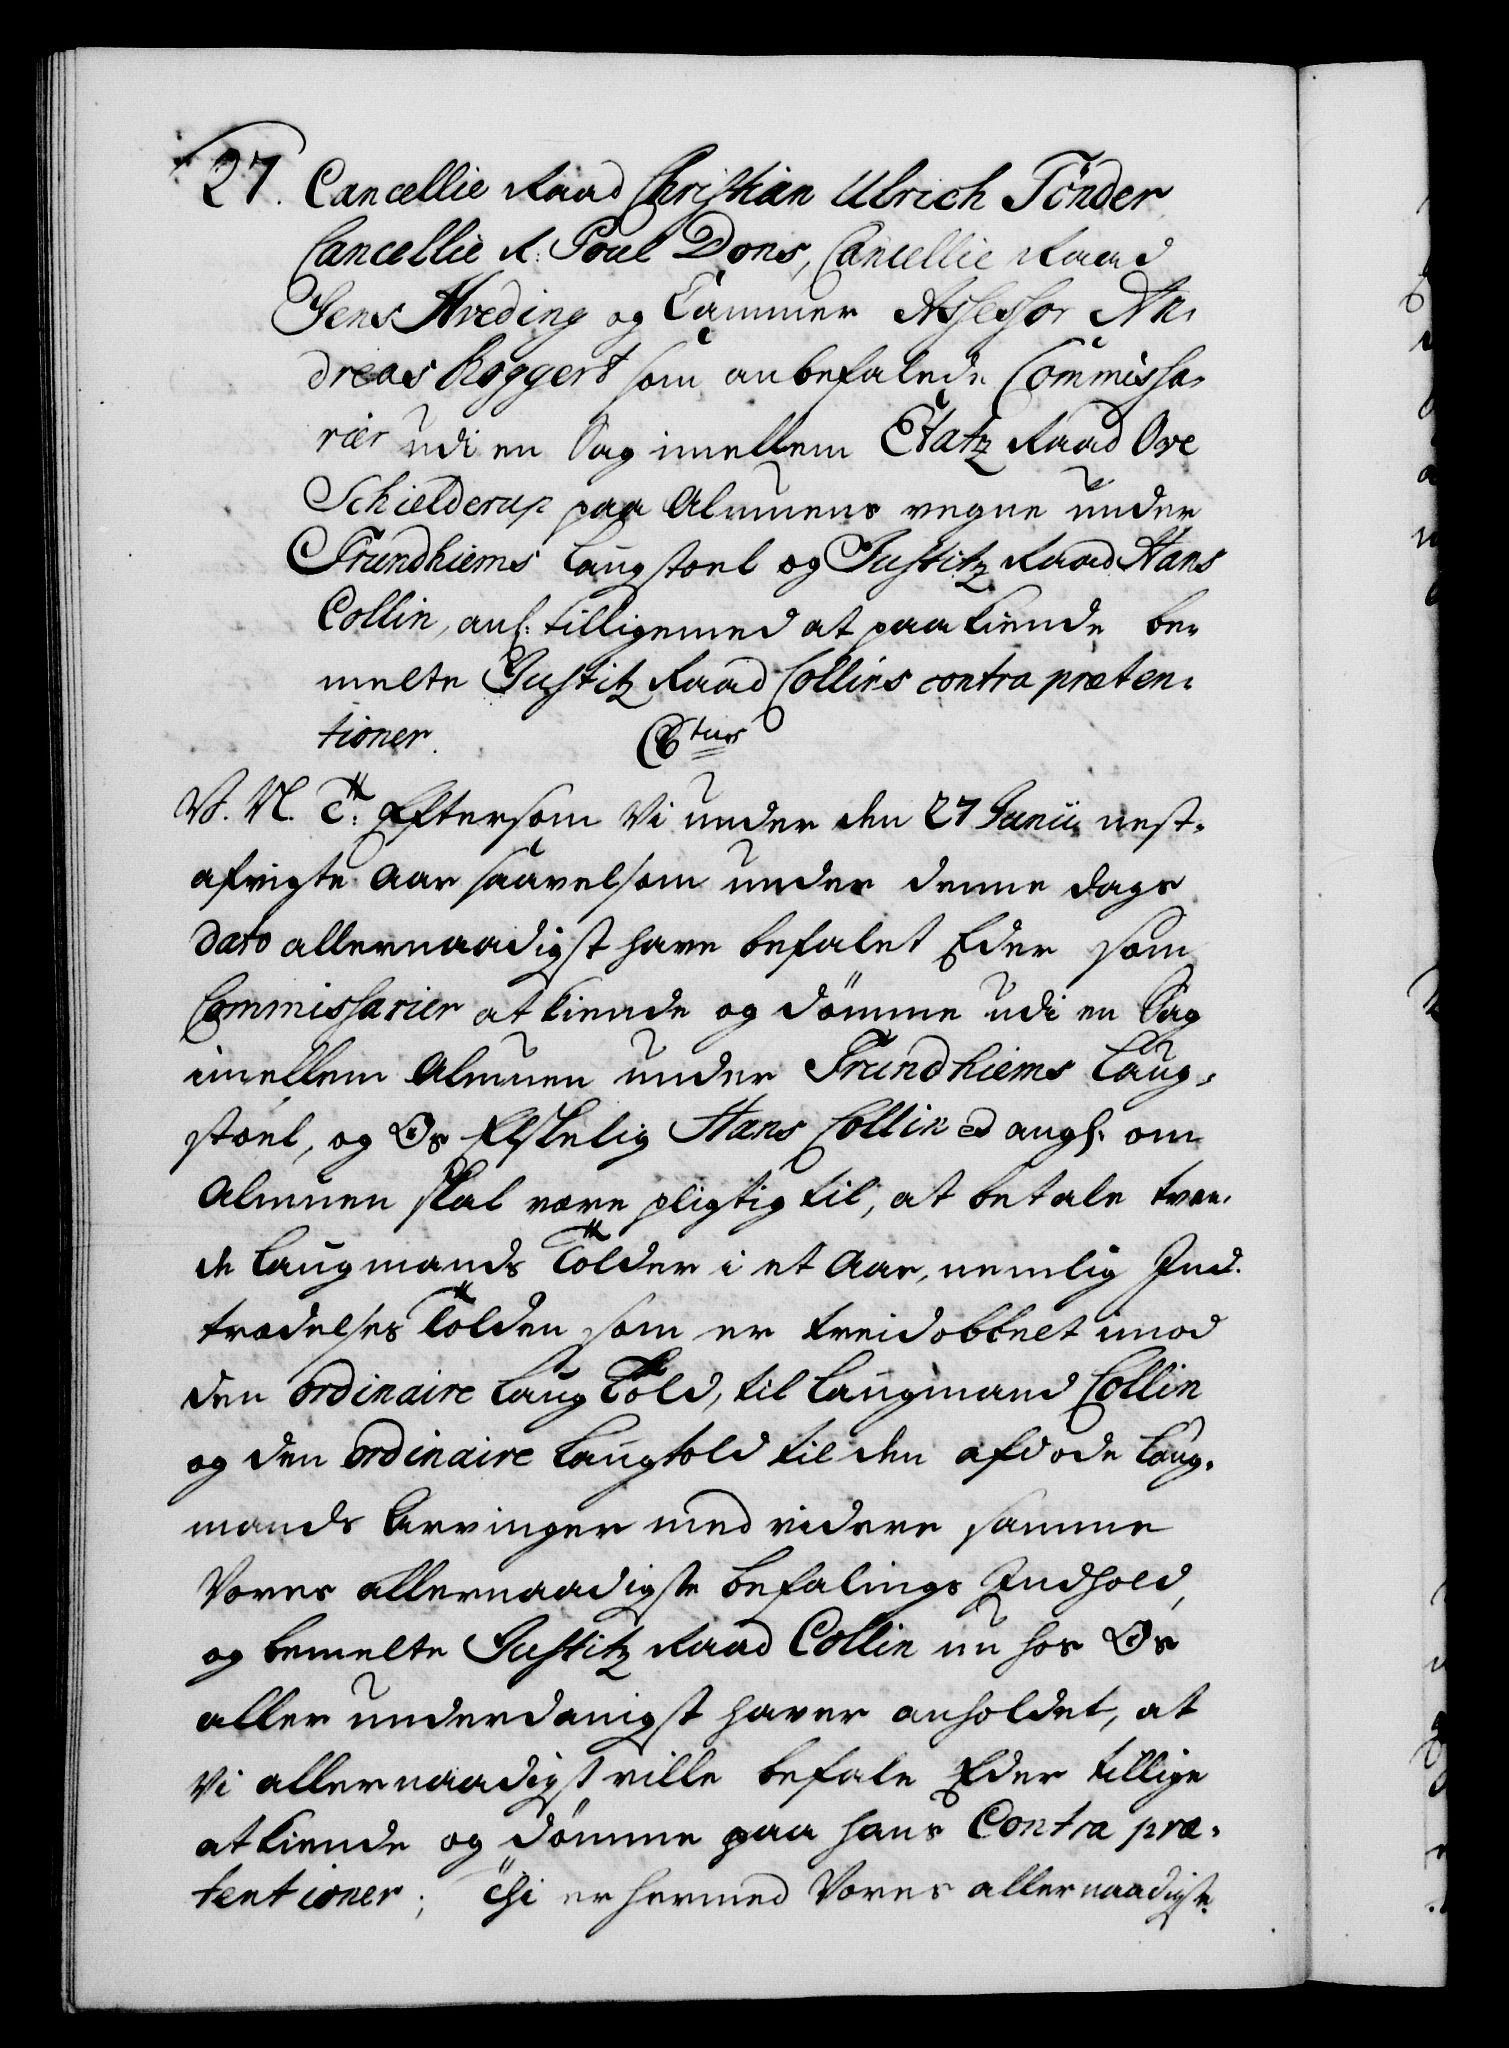 27. Cancellie Raad Christian Ulrich Tönder
Cancellie R: Poul Dons, Cancellie Raad
Jens Hveding og Cammer Assessor An-
dreas Roggert som anbefalede Commissa-
rier udi en Sag imellem Etatz Raad Ove
Schielderup paa Almuens vegne under
Trundhiems Laugstoel og Justitz Raad Hans
Collin, anl: tilligemed at paakiende be-
melte Justitz Raad Collins contra præten-
tioner. Ctus
V. N. T: Eftersom Vi under den 27 Junii nest-
afvigte Aar saavelsom under denne Dags
Dato allernaadigst have befalet Eder som
Commissarier at kiende og dömme udi en Sag
imellem Almuen under Trundhiems Laug-
stoel, og Os Elskelig Hans Collin ɔ angl. om
Almuen skal være pligtig til, at betale tven-
de Laugmands Tolder i et Aar, nemlig Ind-
trædelses Tolden som er treidobbelt imod
den ordinaire Laug Told, til Laugmand Collin
og den ordinaire Laugtold til den afdöde Laug-
mands Arvinger med videre samme
Vores allernaadigste befalings Indhold,
og bemelte Justitz Raad Collin nu hos Os
aller underdanigst haver anholdet, at
Vi allernaadigst ville befale Eder tillige
at kiende og dömme paa hans Contra præ-
tentioner; Thi er hermed Vores allernaadigste